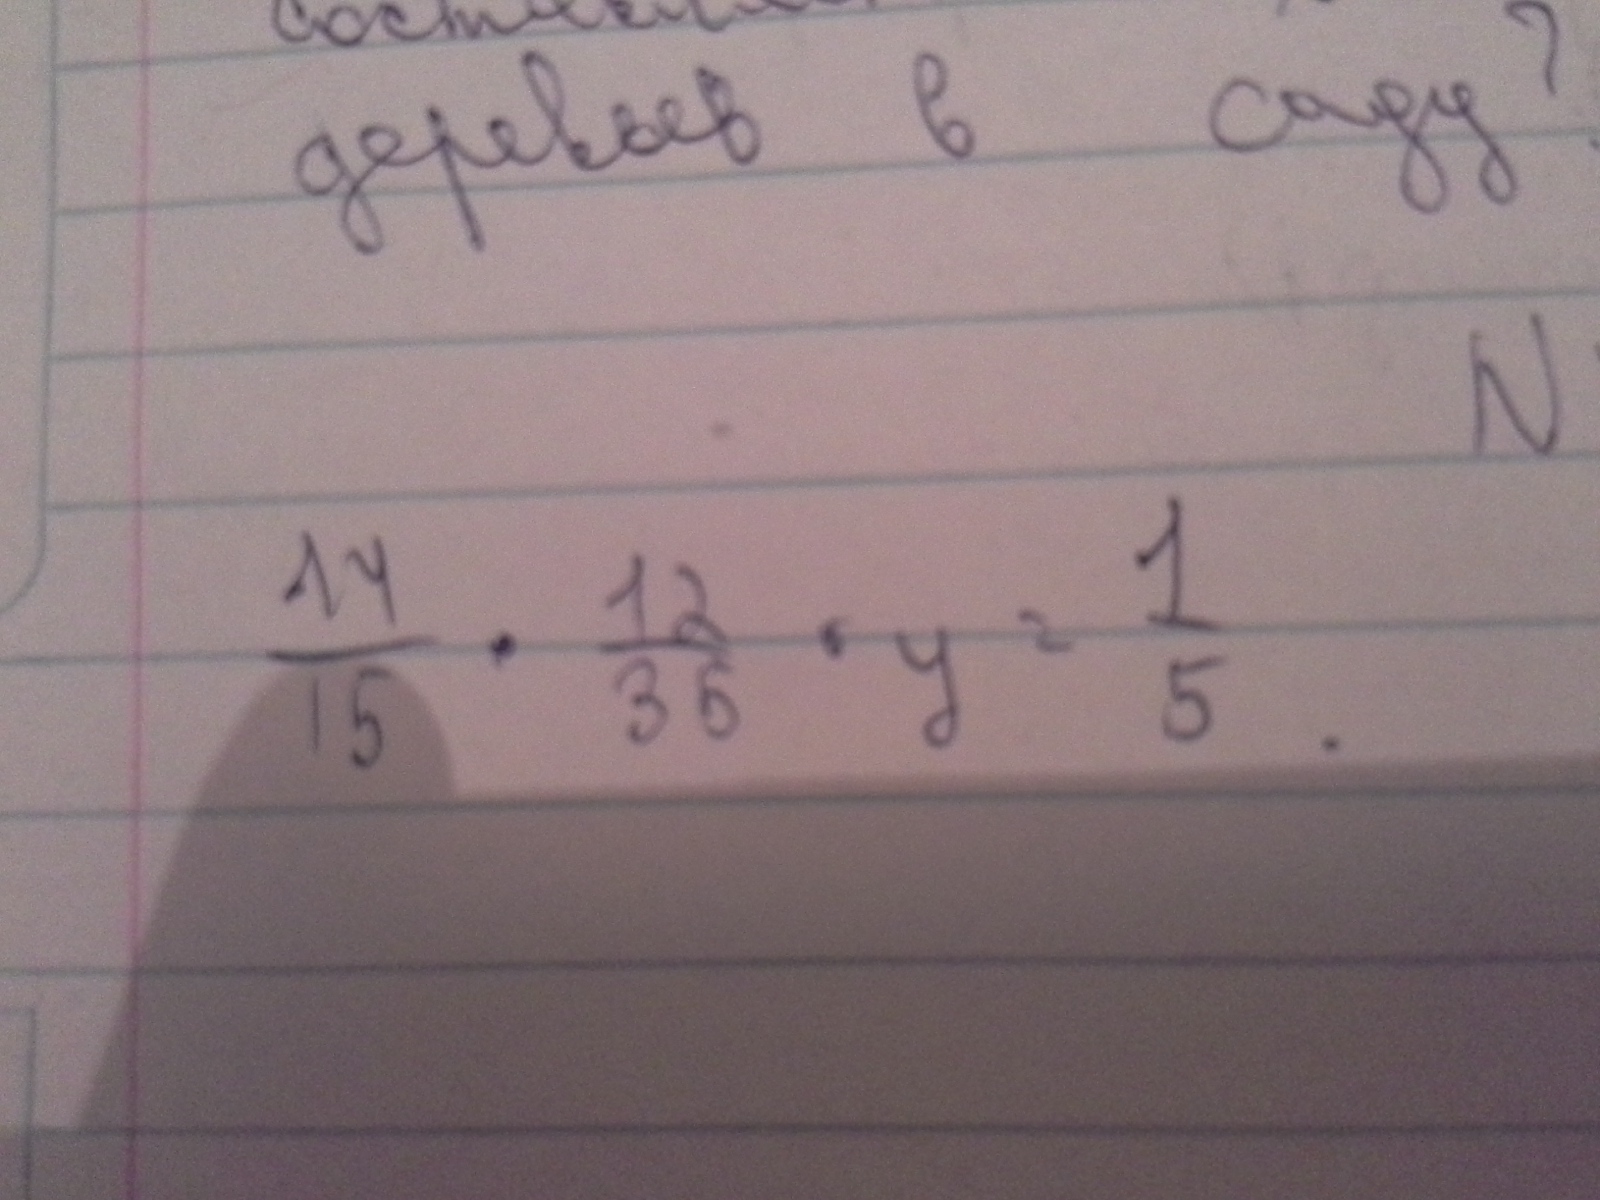 деревьев в саду?
N
14/15 · 12/35 · y = 1/5.